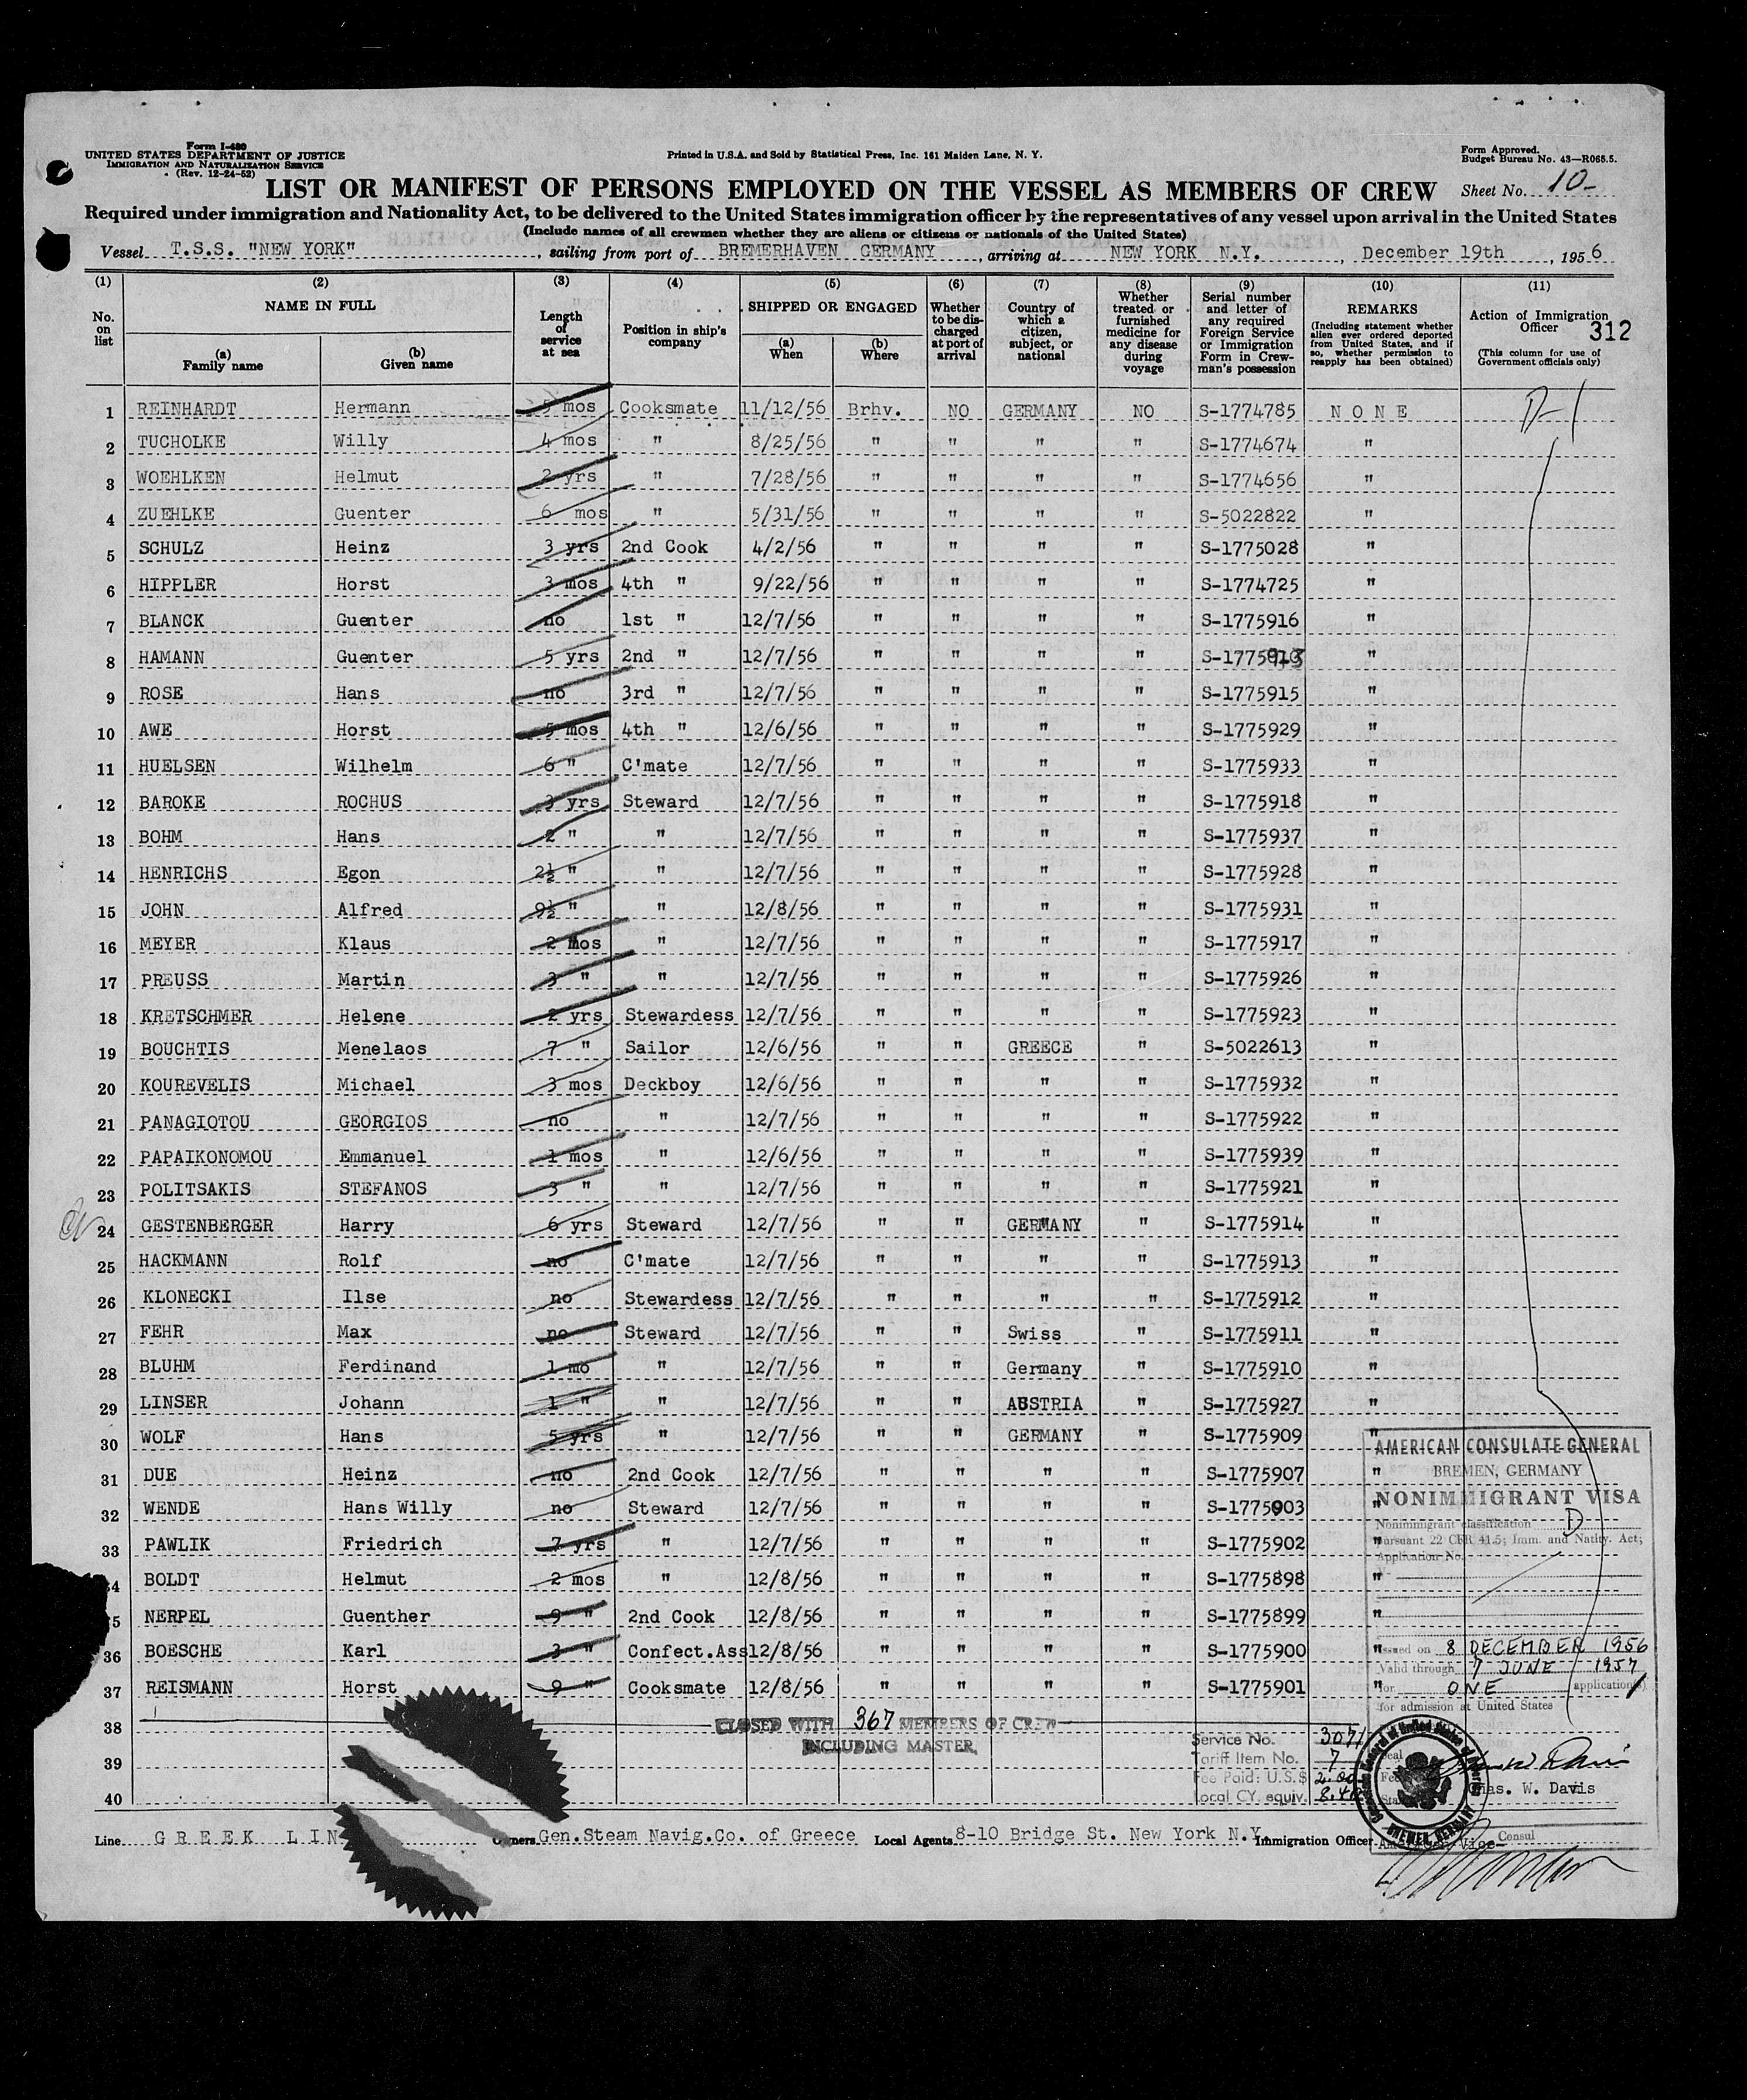 Form I-480
UNITED STATES DEPARTMENT OF JUSTICE
IMMIGRATION AND NATURALIZATION SERVICE
(Rev. 12-24-52)
Printed in U.S.A. and Sold by Statistical Press, Inc. 161 Maiden Lane, N. Y.
Form Approved.
Budget Bureau No. 43—R065.5.
LIST OR MANIFEST OF PERSONS EMPLOYED ON THE VESSEL AS MEMBERS OF CREW Sheet No. 10-
Required under immigration and Nationality Act, to be delivered to the United States immigration officer by the representatives of any vessel upon arrival in the United States
(Include names of all crewmen whether they are aliens or citizens or nationals of the United States)
Vessel T.S.S. "NEW YORK", sailing from port of BREMERHAVEN GERMANY, arriving at NEW YORK N.Y., December 19th, 1956
(1) No. on list
(2) NAME IN FULL (a) Family name (b) Given name
(3) Length of service at sea
(4) Position in ship's company
(5) SHIPPED OR ENGAGED (a) When (b) Where
(6) Whether to be discharged at port of arrival
(7) Country of which a citizen, subject, or national
(8) Whether treated or furnished medicine for any disease during voyage
(9) Serial number and letter of any required Foreign Service or Immigration Form in Crewman's possession
(10) REMARKS (Including statement whether alien ever ordered deported from United States, and if so, whether permission to reapply has been obtained)
(11) Action of Immigration Officer 312 (This column for use of Government officials only)
1 REINHARDT Hermann 5 mos Cooksmate 11/12/56 Brhv. NO GERMANY NO S-1774785 N O N E D-1
2 TUCHOLKE Willy 4 mos " 8/25/56 " " " " S-1774674 "
3 WOEHLKEN Helmut 2 yrs " 7/28/56 " " " " S-1774656 "
4 ZUEHLKE Guenter 6 mos " 5/31/56 " " " " S-5022822 "
5 SCHULZ Heinz 3 yrs 2nd Cook 4/2/56 " " " " S-1775028 "
6 HIPPLER Horst 3 mos 4th " 9/22/56 " " " " S-1774725 "
7 BLANCK Guenter no 1st " 12/7/56 " " " " S-1775916 "
8 HAMANN Guenter 5 yrs 2nd " 12/7/56 " " " " "
9 ROSE Hans no 3rd " 12/7/56 " " " " S-1775915 "
10 AWE Horst 5 mos 4th " 12/6/56 " " " " S-1775929 "
11 HUELSEN Wilhelm 6 " C'mate 12/7/56 " " " " S-1775933 "
12 BAROKE ROCHUS 3 yrs Steward 12/7/56 " " " " S-1775918 "
13 BOHM Hans 2 " " 12/7/56 " " " " S-1775937 "
14 HENRICHS Egon 2½ " " 12/7/56 " " " " S-1775928 "
15 JOHN Alfred 9½ " " 12/8/56 " " " " S-1775931 "
16 MEYER Klaus 2 mos " 12/7/56 " " " " S-1775917 "
17 PREUSS Martin 3 " " 12/7/56 " " " " S-1775926 "
18 KRETSCHMER Helene 2 yrs Stewardess 12/7/56 " " " " S-1775923 "
19 BOUCHTIS Menelaos 7 " Sailor 12/6/56 " " GREECE " S-5022613 "
20 KOUREVELIS Michael 3 mos Deckboy 12/6/56 " " " " S-1775932 "
21 PANAGIOTOU GEORGIOS no " 12/7/56 " " " " S-1775922 "
22 PAPAIKONOMOU Emmanuel 1 mos " 12/6/56 " " " " S-1775939 "
23 POLITSAKIS STEFANOS 3 " " 12/7/56 " " " " S-1775921 "
24 GESTENBERGER Harry 6 yrs Steward 12/7/56 " " GERMANY " S-1775914 "
25 HACKMANN Rolf no C'mate 12/7/56 " " " " S-1775913 "
26 KLONECKI Ilse no Stewardess 12/7/56 " " " " S-1775912 "
27 FEHR Max no Steward 12/7/56 " " Swiss " S-1775911 "
28 BLUHM Ferdinand 1 mo " 12/7/56 " " Germany " S-1775910 "
29 LINSER Johann 1 " " 12/7/56 " " AUSTRIA " S-1775927 "
30 WOLF Hans 5 yrs " 12/7/56 " " GERMANY " S-1775909 "
31 DUE Heinz no 2nd Cook 12/7/56 " " " " S-1775907 "
32 WENDE Hans Willy no Steward 12/7/56 " " " " S-1775903 "
33 PAWLIK Friedrich 7 yrs " 12/7/56 " " " " S-1775902 "
34 BOLDT Helmut 2 mos " 12/8/56 " " " " S-1775898 "
35 NERPEL Guenther 9 " 2nd Cook 12/8/56 " " " " S-1775899 "
36 BOESCHE Karl 3 " Confect.Ass 12/8/56 " " " " S-1775900 "
37 REISMANN Horst 9 " Cooksmate 12/8/56 " " " " S-1775901 "
38
39
40
CLOSED WITH 367 MEMBERS OF CREW
INCLUDING MASTER.
AMERICAN CONSULATE GENERAL
BREMEN, GERMANY
NONIMMIGRANT VISA
Nonimmigrant classification D
Pursuant 22 CFR 41.5; Imm. and Natlty. Act;
Application No.
Issued on 8 DECEMBER 1956
Valid through 7 JUNE 1957
for ONE application(s)
for admission at United States
Service No. 3071
Tariff Item No. 7
Fee Paid: U.S.$ 2.00
Local CY. equiv. 8.40
Seal
Chas. W. Davis
American Vice Consul
Line GREEK LIN Owners Gen.Steam Navig.Co. of Greece Local Agents 8-10 Bridge St. New York N.Y. Immigration Officer